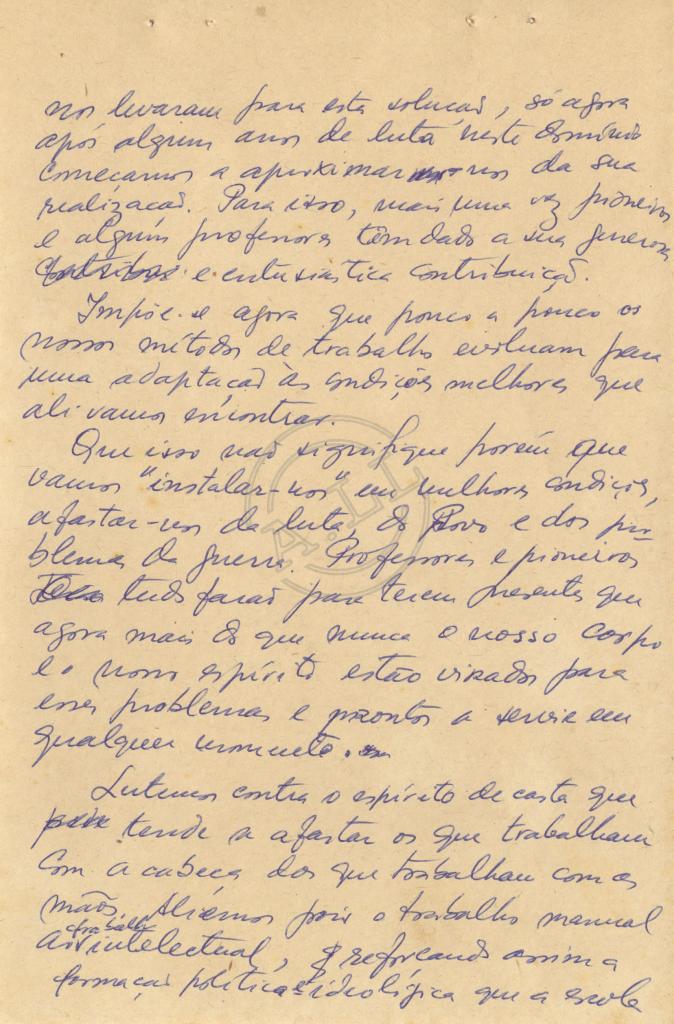 nos levaram para esta solucaõ, só agora
após alguns anos de luta neste domínio
começamos a aproximar-nos da sua
realizacaõ. Para isso, mais uma vez pioneiros
e alguns professores têm dado a sua generosa
e entusiastica contribuição.
Impõe-se agora que pouco a pouco os
nossos métodos de trabalho evoluam para
uma adaptaçaõ às condições melhores que
ali vamos encontrar.
Que isso naõ signifique porém que
vamos "instalar-nos" em melhores condições,
afastar-nos da luta, do Povo e dos pro-
blemas da guerra. Professores e pioneiros
tudo faraõ para terem presentes que
agora mais do que nunca o nosso corpo
e o nosso espírito estão virados para
esses problemas e prontos a servir em
qualquer momento.
Lutemos contra o espírito de casta que
tende a afastar os que trabalham
com a cabeça dos que trabalham com as
mãos. Aliemos pois o trabalho manual
ao trabalho intelectual, reforcando assim a
formaçaõ política e ideológica que a escola
A.T.L.